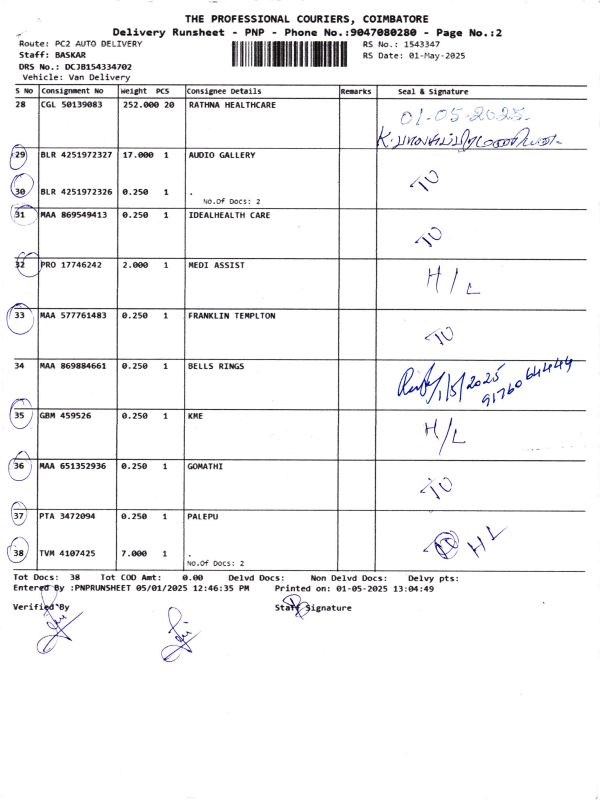 THE PROFESSIONAL COURIERS, COIMBATORE
Delivery Runsheet - PNP - Phone No.:9047080280 - Page No.:2
Route: PC2 AUTO DELIVERY
RS No.: 1543347
Staff: BASKAR
RS Date: 01-May-2025
DRS No.: DCJB154334702
Vehicle: Van Delivery
S No Consignment No Weight PCS Consignee Details Remarks Seal & Signature
28 CGL 50139083 252.000 20 RATHNA HEALTHCARE 01-05-2025
29 BLR 4251972327 17.000 1 AUDIO GALLERY
TO
30 BLR 4251972326 0.250 1 .
No.Of Docs: 2
31 MAA 869549413 0.250 1 IDEALHEALTH CARE
TO
32 PRO 17746242 2.000 1 MEDI ASSIST H/L
33 MAA 577761483 0.250 1 FRANKLIN TEMPLTON
TO
34 MAA 869884661 0.250 1 BELLS RINGS 1/5/2025
9176064444
35 GBM 459526 0.250 1 KME H/L
36 MAA 651352936 0.250 1 GOMATHI
TO
37 PTA 3472094 0.250 1 PALEPU
H L
38 TVM 4107425 7.000 1 .
No.Of Docs: 2
Tot Docs: 38 Tot COD Amt: 0.00 Delvd Docs: Non Delvd Docs: Delvy pts:
Entered By :PNPRUNSHEET 05/01/2025 12:46:35 PM Printed on: 01-05-2025 13:04:49
Verified By Staff Signature